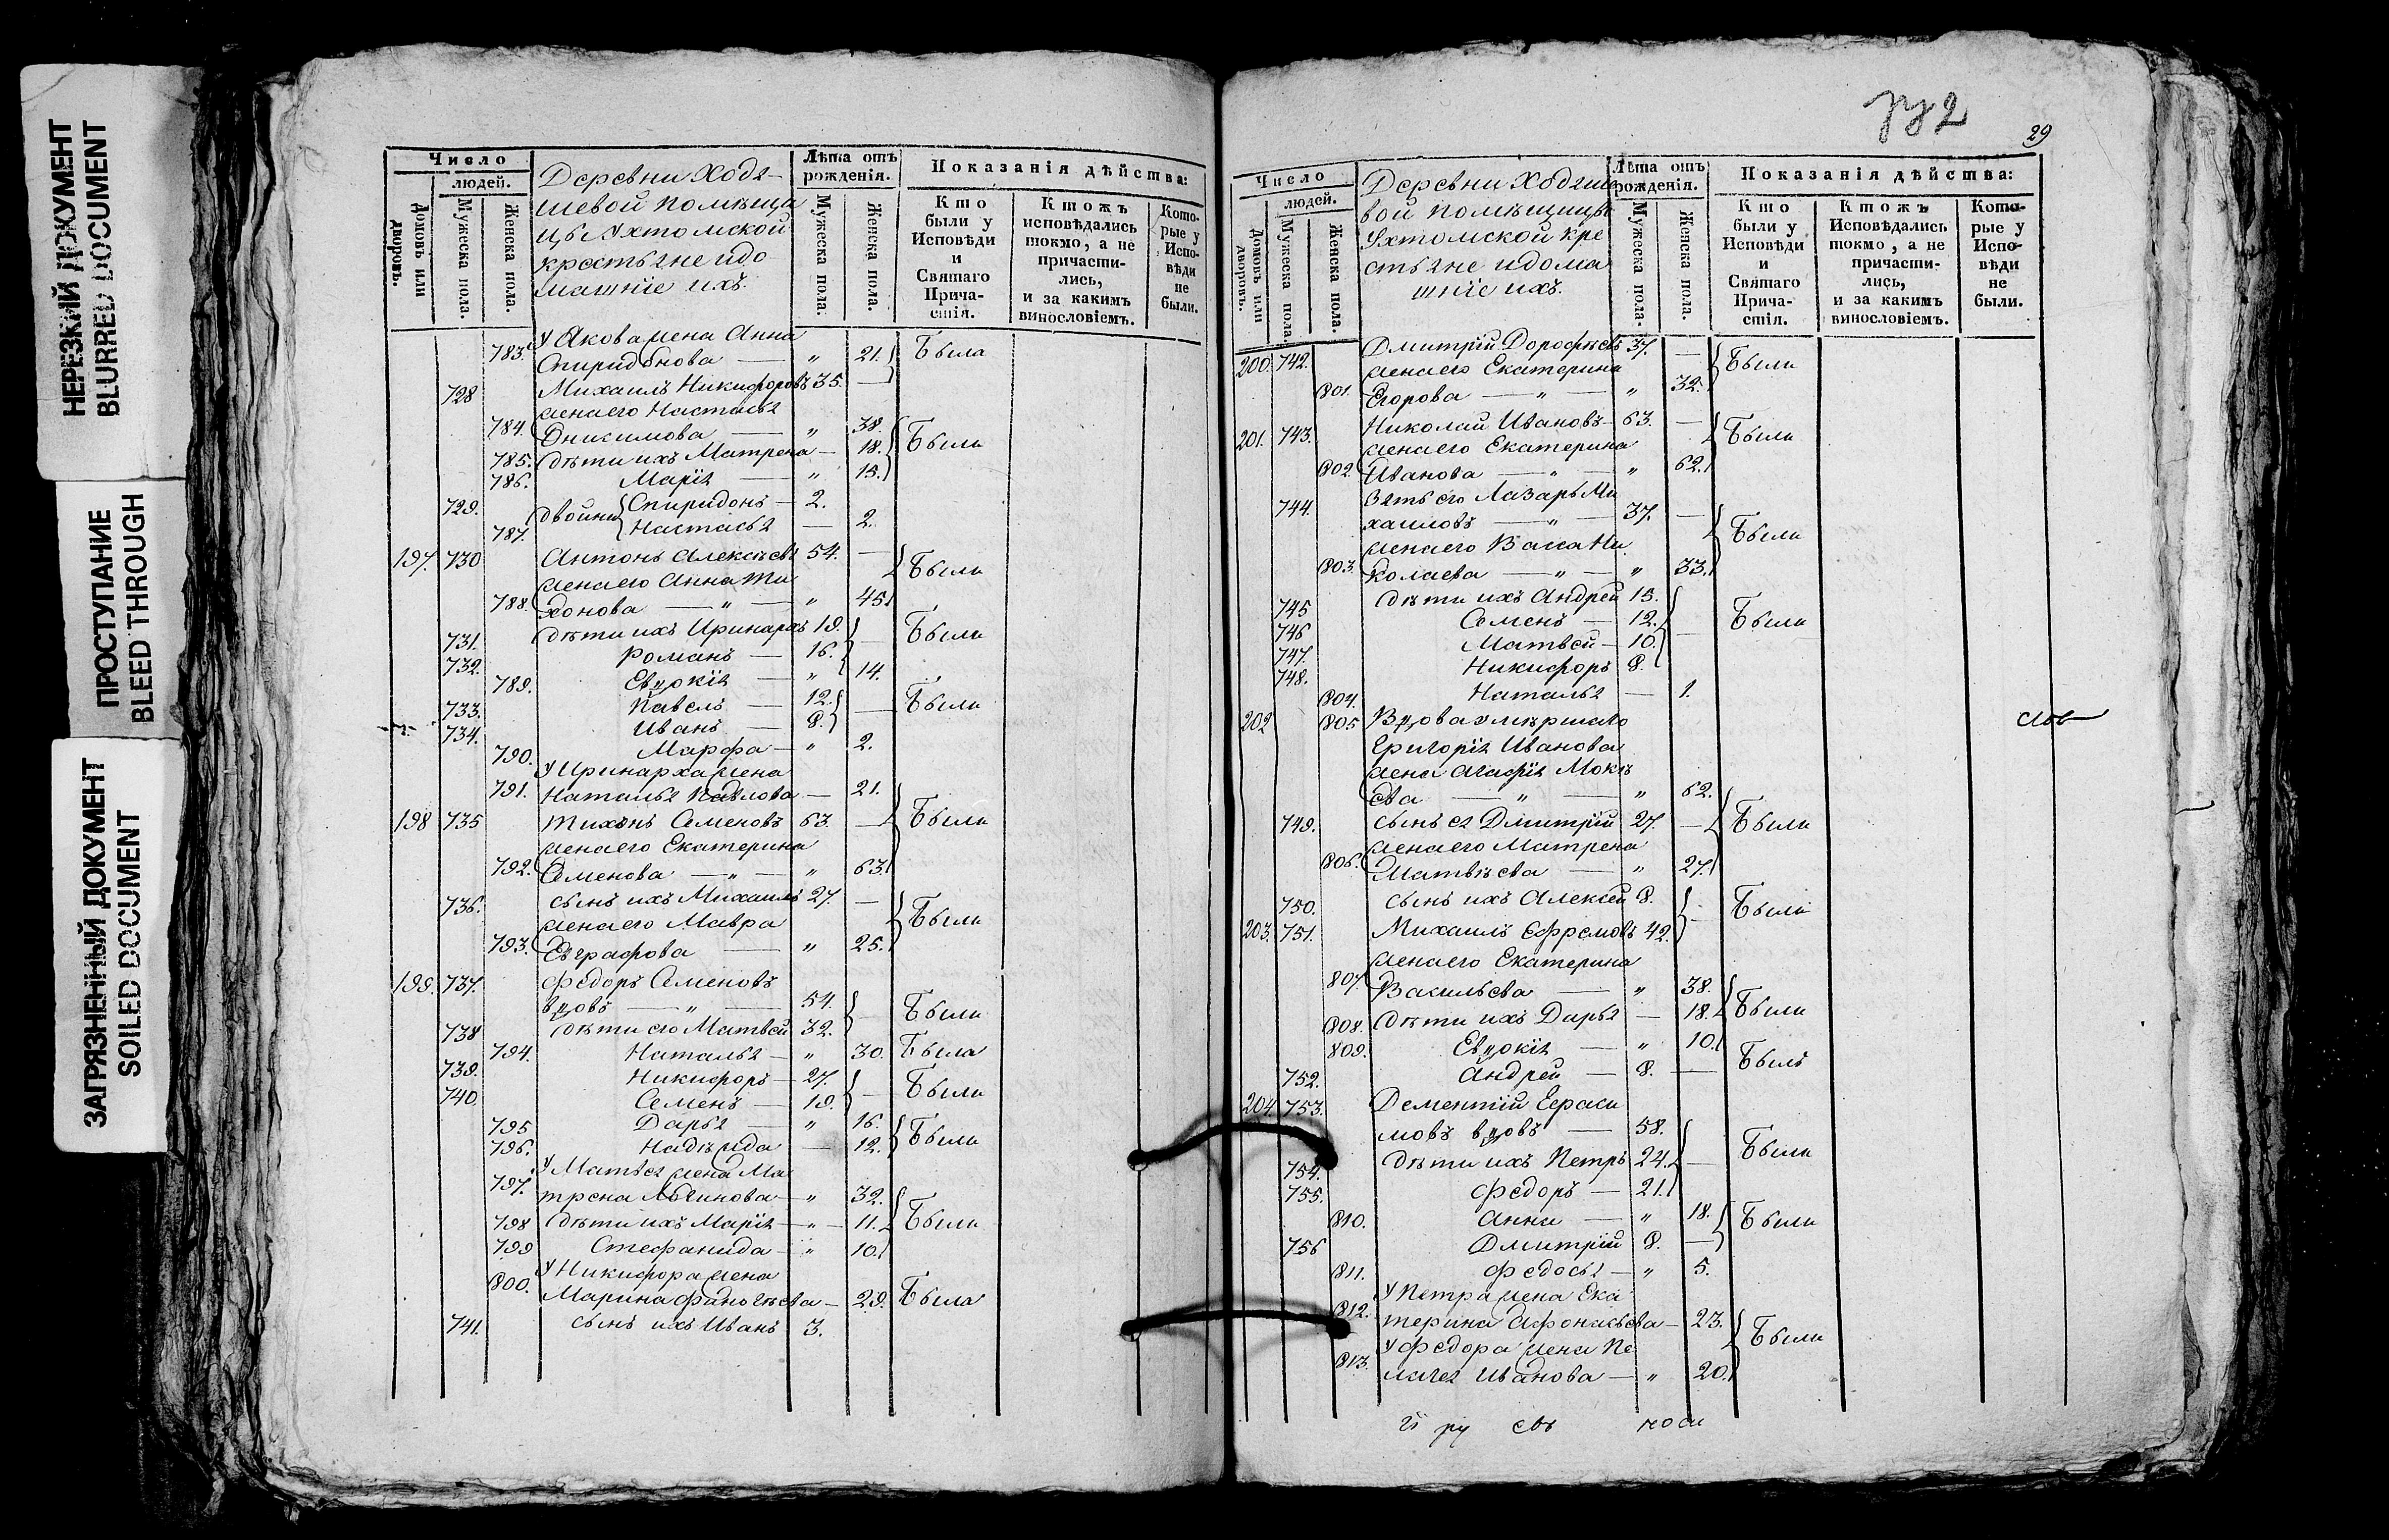 НЕРЕЗКИЙ ДОКУМЕНТ
BLURRED DOCUMENT
ПРОСТУПАНИЕ
BLEED THROUGH
ЗАГРЯЗНЕННЫЙ ДОКУМЕНТ
SOILED DOCUMENT
Число
людей.
Домовъ или дворовъ.
Мужеска пола.
Женска пола.
Деревни Ходя-
шевой помѣщи
цы Ухтомской
крестьяне и до
машніе ихъ.
Лѣта отъ
рожденія.
Мужеска пола.
Женска пола.
Показанія дѣйства:
Кто
были у
Исповѣди
и
Святаго
Прича-
стія.
Ктожъ
исповѣдались
токмо, а не
причасти-
лись,
и за какимъ
винословіемъ.
Кото-
рые у
Испо-
вѣди
не
были.
У Якова жена Анна
783. Спиридонова — „ 21. Была
728 Михаилъ Никифоровъ 35. —
жена его Настасья
784. Онисимова — „ 38. Были
785. дѣти ихъ Матрена — 18.
786. Марія — „ 15.
729. двойни Спиридонъ — 2.
787. Настасья — 2.
197. 730 Антонъ Алексѣевъ 54. — Были
жена его Анна Ти
788. хонова — „ — „ 45.
731. дѣти ихъ Иринархъ 19. Были
732. Романъ — 16.
789. Евдокія — „ 14.
733. Павелъ — 12. — Были
734. Иванъ — 8.
790. Марфа — „ 2.
У Иринарха жена
791. Наталья Павлова — 21.
198 735 Тихонъ Семеновъ 63. — Были
жена его Екатерина
792. Семенова — „ — „ 63.
736. сынъ ихъ Михаилъ 27. —
жена его Мавра Были
793. Евграфова — „ 25.
199. 737. Федоръ Семеновъ
вдовъ — „ — 54. Были
738 дѣти его Матвей 32.
794. Наталья — „ 30. Была
739. Никифоръ — 27. Были
740. Семенъ — 19.
795 Дарья — „ 16. Были
796. Надѣжда — 12.
У Матвея жена Ма
797. трена Логинова — „ 32. Были
798 дѣти ихъ Марія — „ — 11.
799 Стефанида — „ 10.
У Никифора жена
800. Марина Финогѣева — 29. Была
741. сынъ ихъ Иванъ 3.
29
Число
людей.
Домовъ или дворовъ.
Мужеска пола.
Женска пола.
Деревни Ходяше
вой помѣщицы
Ухтомской кре
стьяне и дома
шніе ихъ.
Лѣта отъ
рожденія.
Мужеска пола.
Женска пола.
Показанія дѣйства:
Кто
были у
Исповѣди
и
Святаго
Прича-
стія.
Ктожъ
Исповѣдались
токмо, а не
причасти-
лись,
и за какимъ
винословіемъ.
Кото-
рые у
Испо-
вѣди
не
были.
200. 742. Дмитрій Дорофѣевъ 37. — Были
жена его Екатерина
801. Егорова — „ — „ 32.
201. 743. Николай Ивановъ — 63. — Были
жена его Екатерина
802. Иванова — „ — „ 62.
744. Зять его Лазарь Ми
хаиловъ — „ — 37. — Были
жена его Васса Ни
803. колаева — „ — „ 33.
745 дѣти ихъ Андрей 15. Были
746 Семенъ — 12.
747. Матвей — 10.
748. Никифоръ 8.
804. Наталья — 1.
202 805 Вдова умѣршаго
Григорія Иванова
жена Агафія Мокѣ
ева — „ — „ 62.
749. сынъ ея Дмитрій 27. — Были
жена его Матрена
806. Матвѣева — „ 27.
750. сынъ ихъ Алексей 8. Были
203. 751. Михаилъ Ефремовъ 42.
жена его Екатерина
807. Васильева — „ 38. Были
808. дѣти ихъ Дарья — 18.
809. Евдокія — „ 10.
752. Андрей — 8. — Былъ
204 753. Дементій Гераси
мовъ вдовъ — 58. Были
754. дѣти ихъ Петръ 24. —
755. Федоръ — 21.
810. Анна — „ 18. Были
756 Дмитрій 8. —
811. Федосья — „ 5.
У Петра жена Ека
812. терина Афонасьева — 23. Были
У Федора жена Пе
813. лагея Иванова — „ 20.